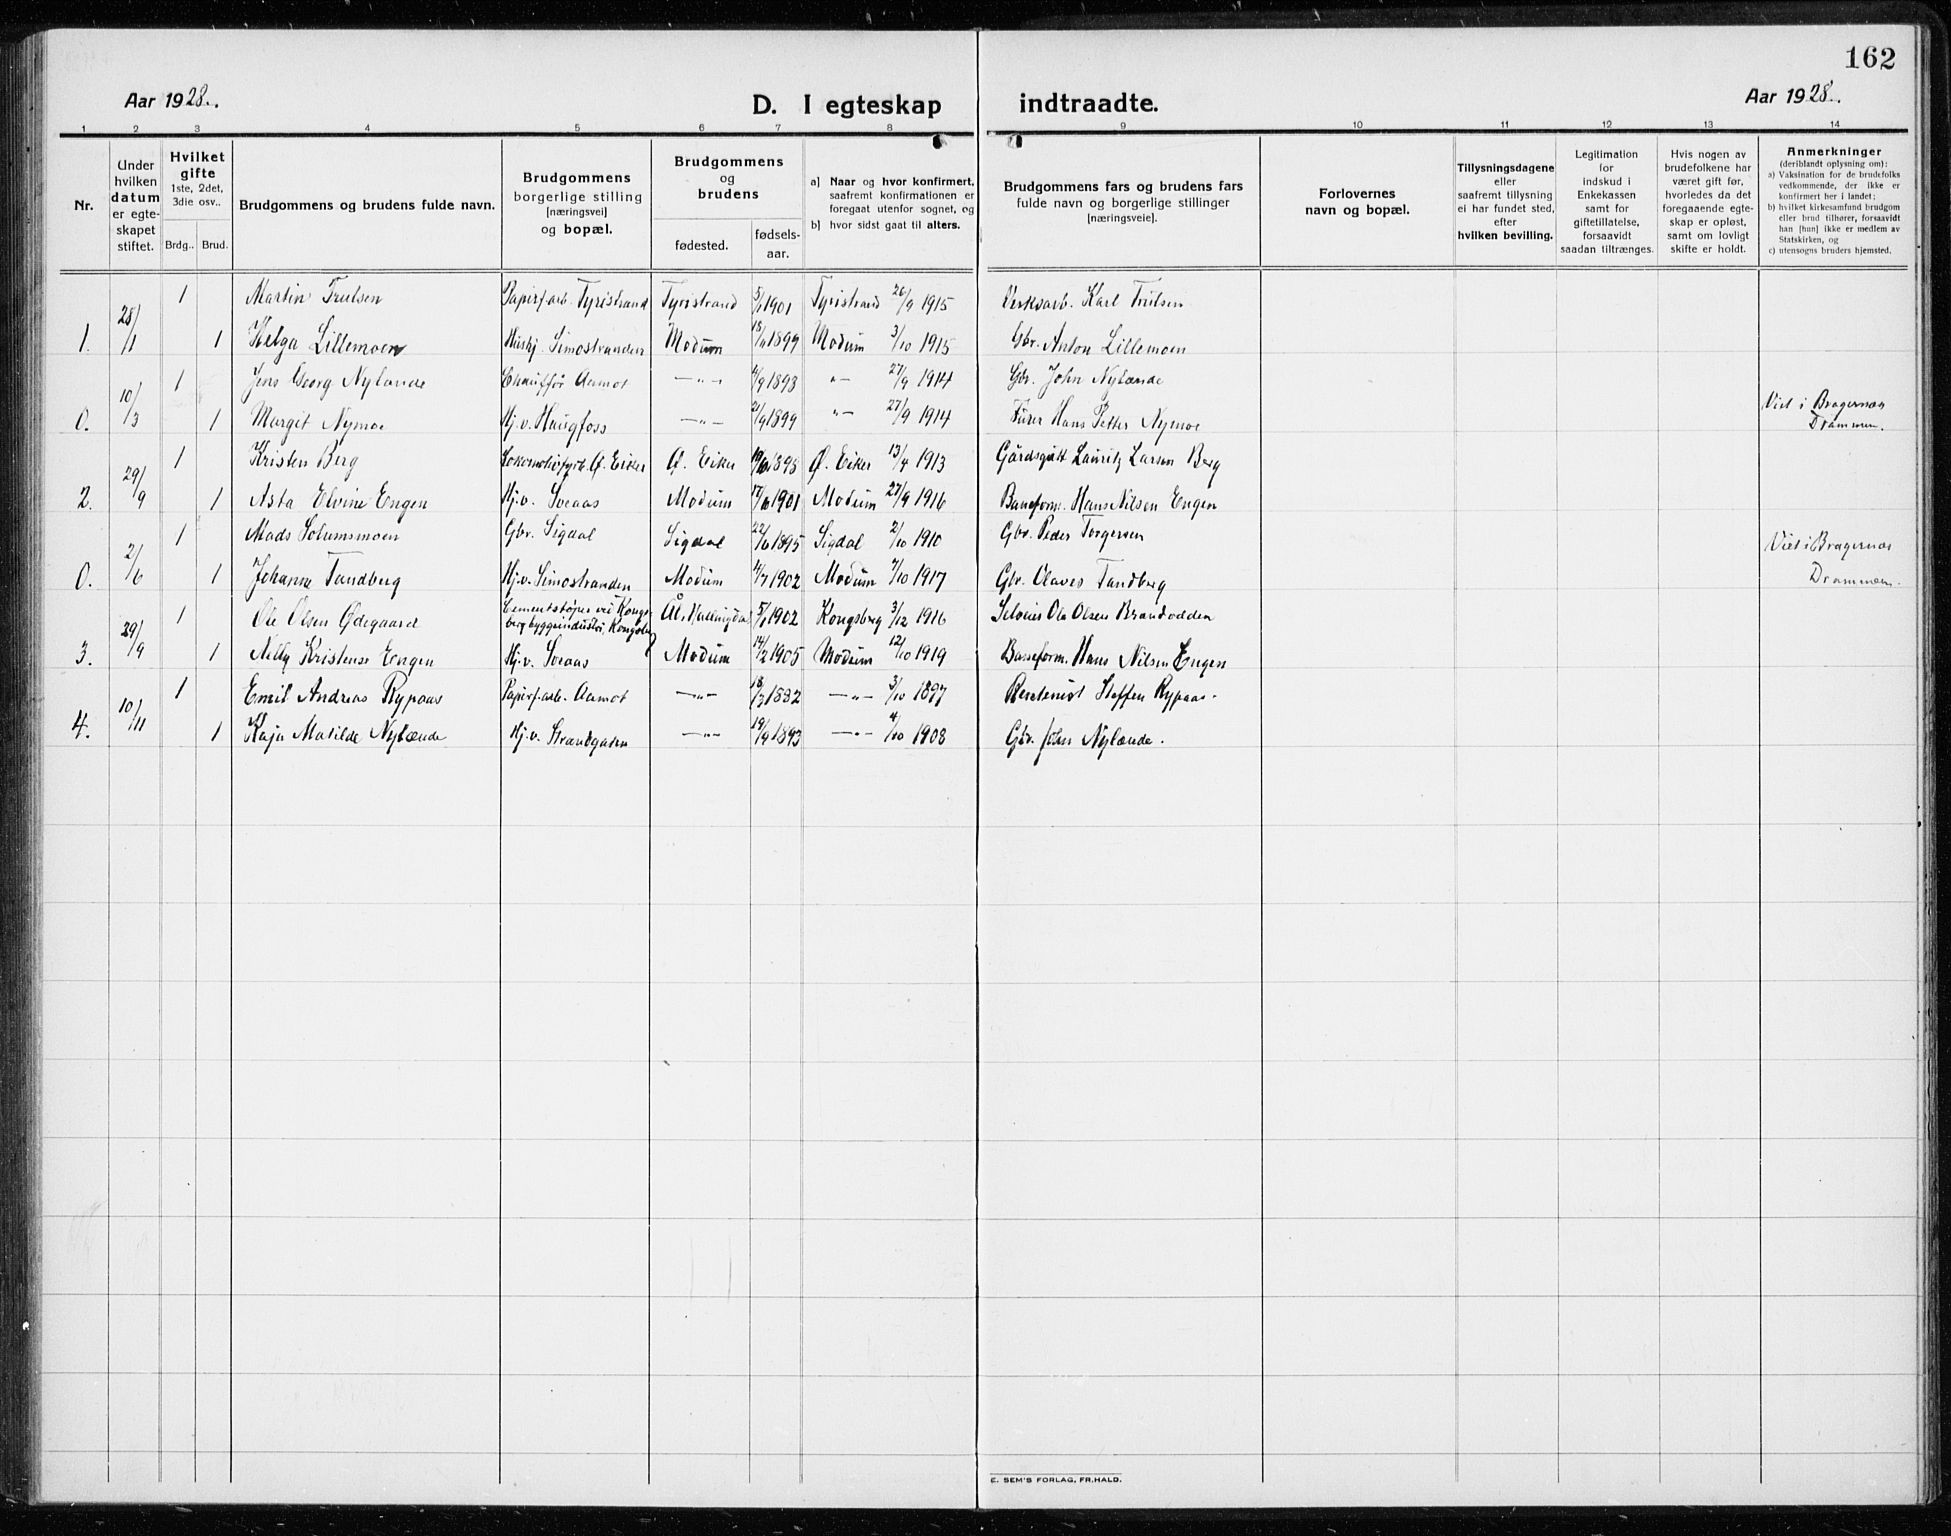 162
Aar 1928.
D. I egteskap indtraadte.
Aar 1928.
1 2 3 4 5 6 7 8 9 10 11 12 13 14
Nr.
Under hvilken datum er egte-skapet stiftet.
Hvilket gifte 1ste, 2det, 3die osv.. Brdg.. Brud.
Brudgommens og brudens fulde navn.
Brudgommens borgerlige stilling [næringsvei] og bopæl.
Brudgommens og brudens fødested. fødsels-aar.
a) Naar og hvor konfirmert, saafremt konfirmationen er foregaat utenfor sognet, og
b) hvor sidst gaat til alters.
Brudgommens fars og brudens fars fulde navn og borgerlige stillinger [næringsveie].
Forlovernes navn og bopæl.
Tillysningsdagene eller saafremt tillysning ei har fundet sted, efter hvilken bevilling.
Legitimation for indskud i Enkekassen samt for giftetillatelse, forsaavidt saadan tiltrænges.
Hvis nogen av brudefolkene har været gift før, hvorledes da det foregaaende egte-skap er opløst, samt om lovligt skifte er holdt.
Anmerkninger (deriblandt oplysning om):
a) Vaksination for de brudefolks vedkommende, der ikke er konfirmert her i landet;
b) hvilket kirkesamfund brudgom eller brud tilhører, forsaavidt han [hun] ikke er medlem av Statskirken, og
c) utensogns bruders hjemsted.
1 Martin Trulsen Papirf.arb. Tyristrand Tyristrand 5/1 1901 Tyristrand 26/9 1915 Verksarb. Karl Trulsen
1. 28/1 1 Helga Lillemoen Hushj. Simostranden Modum 1899 Modum 3/10 1915 Gbr. Anton Lillemoen
1 Jens Georg Nylænde Chauffør Aamot —"— 4/9 1898 "— 27/9 1914 Gbr. John Nylænde
0. 10/3 1 Margit Nymoe Hj.v. Haugfoss —"— 21/9 1899 "— 27/9 1914 Hans Petter Nymoe Viet i Bragernæs Drammen.
1 Kristen Berg Lokomotivfyrb. Ø. Eiker Ø. Eiker 1898 Ø. Eiker 13/4 1913 Gårdsgutt Lauritz Larsen Berg
2. 29/9 1 Asta Elvine Engen Hj.v. Soraas Modum 1901 Modum 27/9 1916 Baneform. Hans Nilsen Engen
1 Mads Solumsmoen Gbr. Sigdal Sigdal 22/6 1895 Sigdal 2/10 1910 Gbr. Peder Torgersen
0. 2/6 1 Johanne Tandberg Hj.v. Simostranden Modum 4/7 1902 Modum 7/10 1917 Gbr. Olaves Tandberg Viet i Bragernæs Drammen.
1 Ole Olsen Ødegaard Cementstøper ved Kongsberg byggeindustri, Kongsberg Ål, Hallingdal 5/1 1902 Kongsberg 3/12 1916 Selveier Ole Olsen Brandvodden
3. 29/9 1 Nelly Kristense Engen Hj.v. Soraas Modum 14/2 1905 Modum 12/10 1919 Baneform. Hans Nilsen Engen
1 Emil Andreas Rypaas Papirf.arb. Aamot —"— 18/7 1882 —"— 3/10 1897 Rentenist Steffen Rypaas.
4. 10/11 1 Kaja Matilde Nylænde Hj.v. Strandgaten —"— 19/9 1893 —"— 4/10 1908 Gbr. John Nylænde.
E. SEM'S FORLAG, FR.HALD.